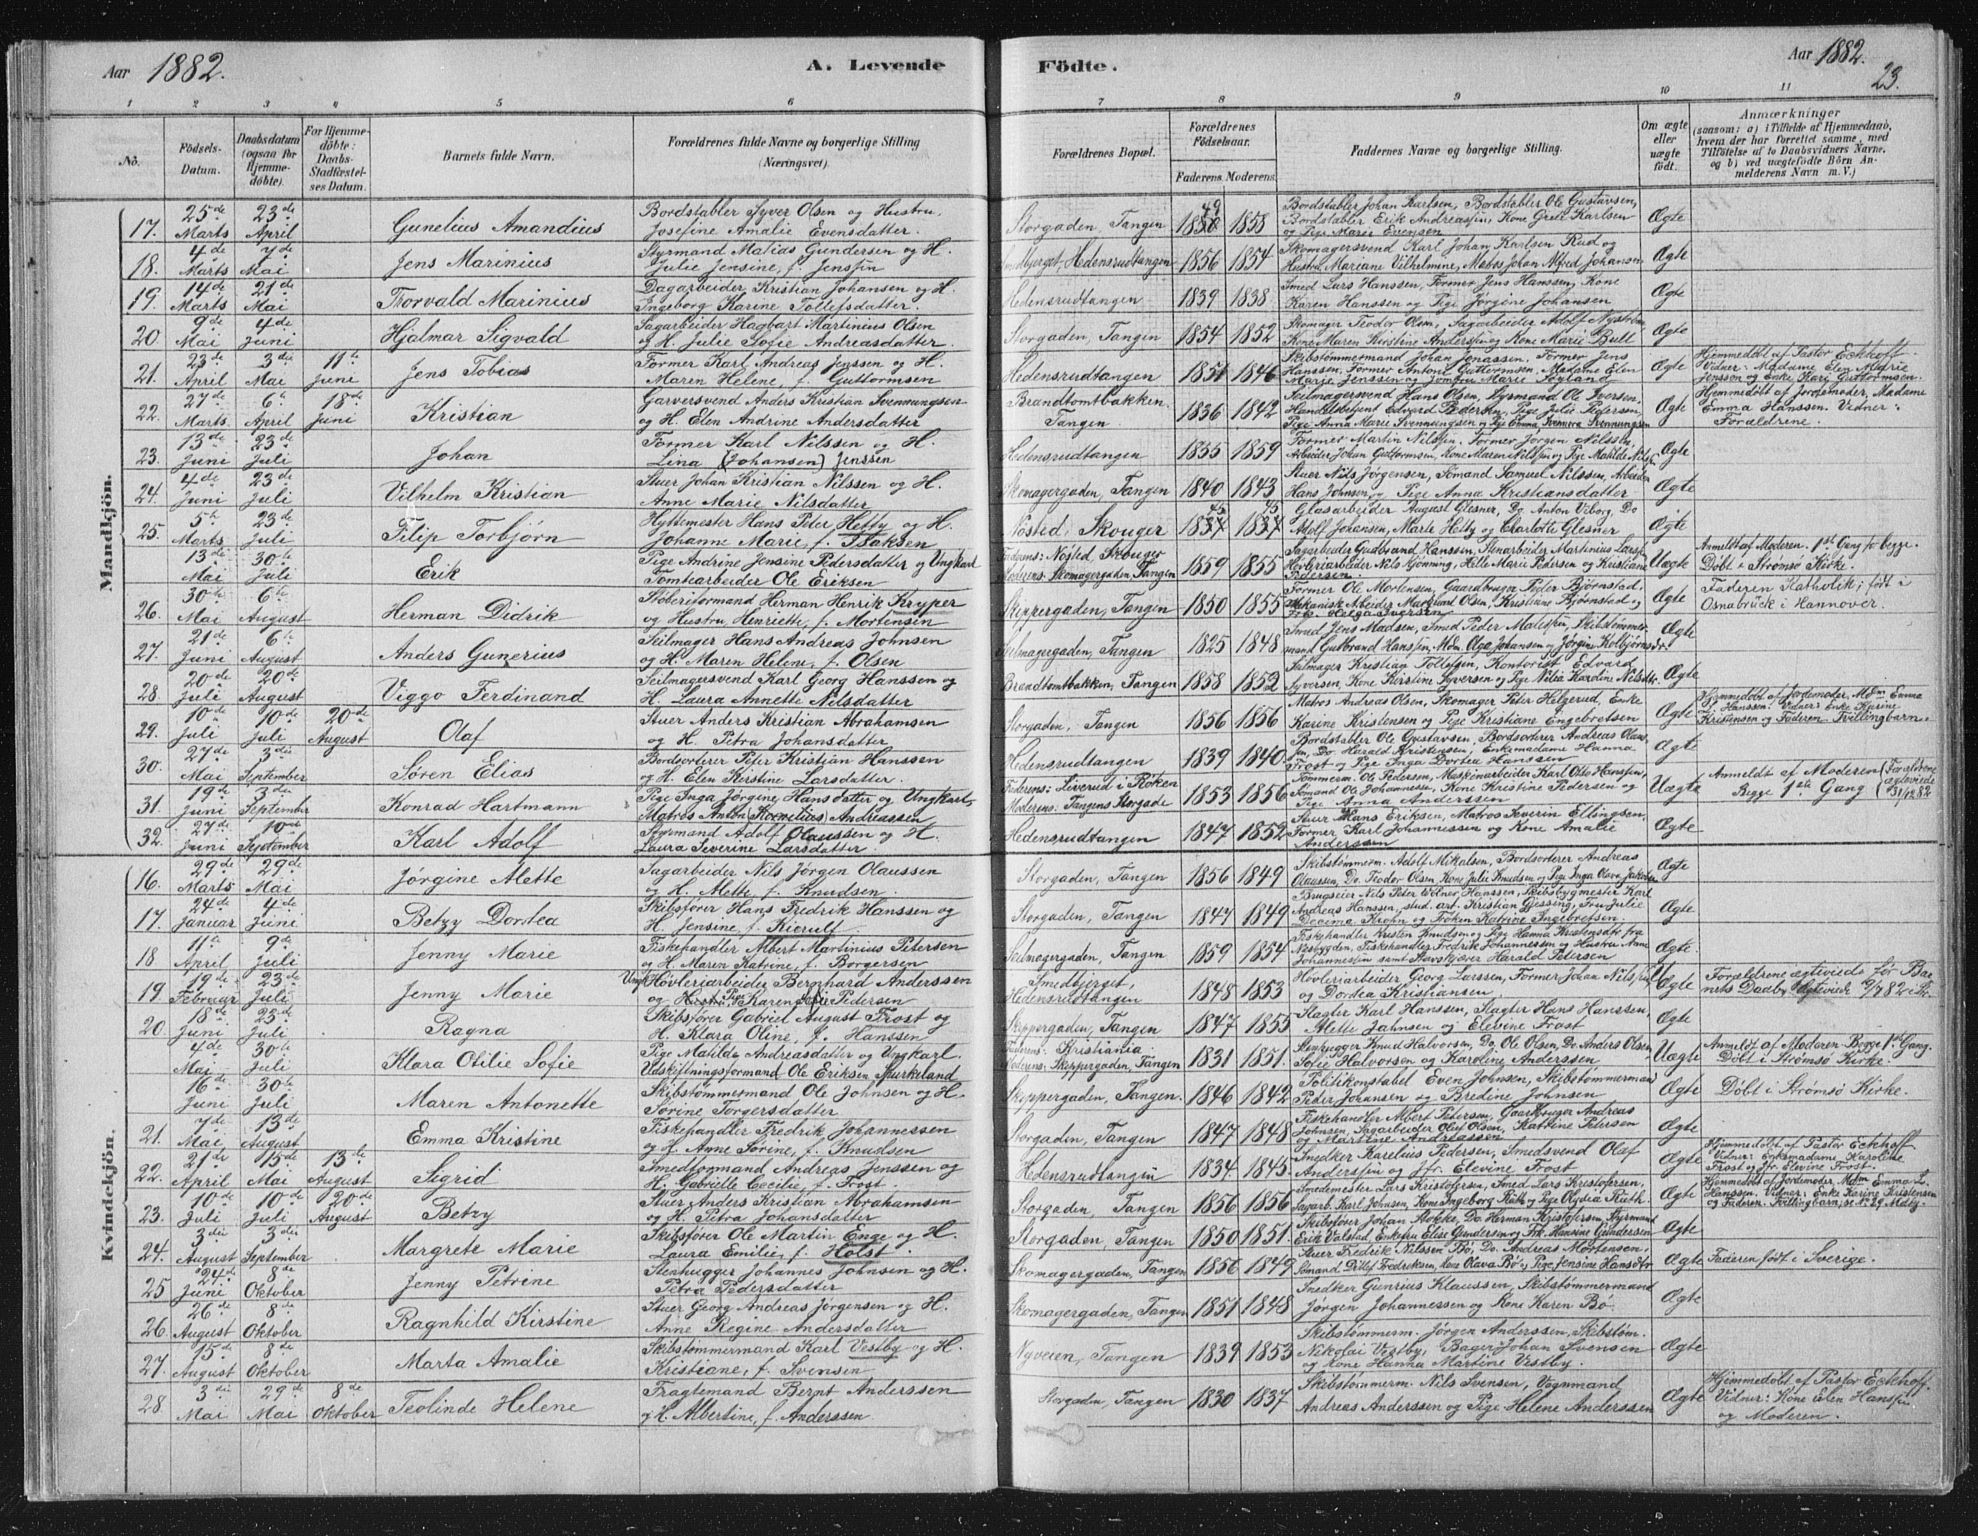 Aar 1882. A. Levende Födte. Aar 1882. 23.
1 2 3 4 5 6 7 8 9 10 11
No. Födsels-Datum. Daabsdatum (ogsaa for Hjemme-döbte). For Hjemme-döbte: Daabs-Stadfæstel-ses Datum. Barnets fulde Navn. Forældrenes fulde Navne og borgerlige Stilling (Næringsvei). Forældrenes Bopæl. Forældrenes Födselsaar. Faderens. Moderens. Faddernes Navne og borgerlige Stilling. Om ægte eller uægte födt. Anmærkninger (saasom: a) i Tilfælde af Hjemmedaab, hvem der har forrettet samme, med Tilföielse af to Daabsvidners Navne, og b) ved uægtefödte Börn An-melderens Navn m. V.)
Mandkjön.
17. 25de Marts 23de April Gunelius Amandius Bordstabler Syver Olsen og Hustru, Josefine Amalie Evensdatter. Storgaden, Tangen 1849 1858 Bordstabler Johan Karlsen, Bordstabler Ole Gustavsen, Bordstabler Erik Andreassen, Kone Grete Karlsen og Pige Marie Evensen Ægte
18. 4de Marts 7de Mai Jens Marinius Styrmand Matias Gundersen og H. Julie Jensine, f. Jenssen Smedbjerget, Hedensrudtangen 1856 1854 Skomagersvend Karl Johan Karlsen Rud og Hustru Mariane Vilhelmine, Matros Johan Alfred Johansen Ægte
19. 14de Marts 21de Mai Thorvald Marinius Dagarbeider Kristian Johansen og H. Ingeborg Karine Tollefsdatter. Hedensrudtangen 1839 1838 Smed Lars Hanssen, Former Jens Hanssen, Kone Karen Hanssen og Pige Jørgine Johansen Ægte
20. 9de Mai 4de Juni Hjalmar Sigvald Sagarbeider Hagbart Martinius Olsen og H. Julie Sofie Andreasdatter. Storgaden, Tangen 1854 1852 Skomager Teodor Olsen, Sagarbeider Adolf Nystrøm, Kone Maren Kristine Anderssen og Kone Marie Bull Ægte
21. 23de April 3die Mai 11te Juni Jens Tobias Former Karl Andreas Jenssen og H. Maren Helene, f. Guttormsen Hedensrudtangen 1851 1846 Skibstømmermand Johan Jonassen, Former Jens Hanssen, Former Anton Guttormsen, Madame Elen Marie Jenssen og Jomfru Marie Ægte Hjemmedøbt af Pastor Eckhoff. Vidner: Madame Elen Marie Jenssen og Enke Kari Guttormsen
22. 27de Marts 6te April 18de Juni Kristian Garversvend Anders Kristian Svenningsen og H. Elen Andrine Andersdatter Brandtomtbakken, Tangen 1836 1842 Seilmagersvend Hans Olsen, Styrmand Ole Iversen, Edvard Pedersen, Pige Julie Pedersen, Pige Anna Marie Svenningsen og Pige Emma Svenningsen Ægte Hjemmedøbt af Jordemoder, Madame Emma Hanssen. Vidner: Forældrene.
23. 13de Juni 23de Juli Johan Former Karl Nilssen og H. Lina (Johansen) Jenssen Hedensrudtangen 1855 1859 Former Martin Nilssen, Former Jørgen Nilssen, Arbeider Johan Guttormsen, Kone Maren Nilssen og Pige Matilde Nilsen Ægte
24. 4de Juni 23de Juli Vilhelm Kristian Stuer Johan Kristian Nilssen og H. Anne Marie Nilsdatter Skomagergaden, Tangen 1840 1843 Stuer Nils Jørgensen, Sømand Samuel Nilssen, Arbeider Hans Johnsen og Pige Anna Kristiansdatter Ægte
25. 5te Marts 23de Juli Filip Torbjørn Hyttemester Hans Peter Hetty og H. Johanne Marie, f. Isaksen Nøsted, Skouger Glasarbeider August Glesner, Do Anton Viborg, Do Adolf Johansen, Marte Hetty og Charlotte Glesner Ægte
13de Mai 30te Juli Erik Pige Andrine Jensine Pedersdatter og Ungkarl Tomtearbeider Ole Eriksen Faderens: Nøsted, Skouger Moderens: Skomagergaden, Tangen 1859 1855 Sagarbeider Gudbrand Hanssen, Stenarbeider Martinius Larssen, Høvleriarbeider Nils Hjønning, Helle Marie Pedersen og Kristiane Pedersen Uægte Anmeldt af Moderen. 1ste Gang for begge. Døbt i Strømsø Kirke.
26. 30te Mai 6te August Herman Didrik Støberiformand Herman Henrik Kryper og Hustru, Henriette, f. Mortensen Skippergaden, Tangen 1850 1855 Former Ole Mortensen, Gaardbruger Peder Bjørnstad, Mekanisk Arbeider Markund Olsen, Kristiane Bjørnstad og Pige Helga Iversen Ægte Faderen Katholik; født i Osnabrück i Hannover.
27. 21de Juni 6te August Anders Gunerius Seilmager Hans Andreas Johnsen og H. Maren Helene, f. Olsen Seilmagergaden, Tangen 1825 1848 Smed Jens Madsen, Smed Peder Madsen, Skibstømmermand Gutbrand Hanssen, Mdm Olga Johansen og Jørgine Kolbjørnsdr. Ægte
28. 20de Juli 20de August Viggo Ferdinand Seilmagersvend Karl Georg Hanssen og H. Laura Annette Nilsdatter Brandtomtbakken, Tangen 1858 1853 Seilmager Kristian Tollefsen, Kontorist Edvard Syversen, Kone Kirstine Syversen og Pige Nilia Karoline Nilsdtr. Ægte
29. 10de Juli 10de Juli 20de August Olaf Stuer Anders Kristian Abrahamsen og H. Petra Johansdatter Storgaden, Tangen 1856 1856 Matros Andreas Olsen, Skomager Peter Helgerud, Enke Karine Kristensen og Pige Kristiane Engebretsen Ægte Hjemmedøbt af Jordemoder, Mdm Emma Hanssen. Vidner: Enke Karine Kristensen og Faderen. Tvillingbarn.
30. 27de Mai 3die September Søren Elias Bordsorterer Peter Kristian Hanssen og H. Elen Kirstine Larsdatter. Hedensrudtangen 1839 1840 Bordstabler Ole Gustavsen, Bordsorterer Andreas Olaussen, Do. Harald Kristensen, Enkemadame Hanna Frost og Pige Inga Dortea Hanssen Ægte
31. 19de Juni 3die September Konrad Hartmann Pige Inga Jørgine Hansdatter og Ungkarl, Matros Anton Kornelius Andreassen Faderens: Liverud i Røken Moderens: Tangens Storgade 1853 1856 Tømmerm. Ole Pedersen, Maskinarbeider Karl Otto Hanssen, Sømand Ole Johannesen, Kone Kristine Pedersen og Pige Anna Anderssen Uægte Anmeldt af Moderen Begge 1ste Gang (Forældrene ægteviede 31/12 82
32. 27de Juni 10de September Karl Adolf Styrmand Adolf Olaussen og H. Laura Severine Larsdatter. Hedensrudtangen 1847 1852 Stuer Hans Eriksen, Matros Severin Ellingsen, Former Karl Johannessen og Kone Amalie Anderssen Ægte
Kvindekjön.
16. 29de Marts 29de Mai Jørgine Alette Sagarbeider Nils Jørgen Olaussen og H. Alette, f. Knudsen. Storgaden, Tangen 1856 1849 Skibstømmerm. Adolf Mikalsen, Bordsorterer Andreas Olaussen, Do. Teodor Olsen, Kone Julie Knudsen og Pige Inga Olava Jakobsen Ægte
17. 24de Januar 4de Juni Betzy Dortea Skibsfører Hans Fredrik Hanssen og H. Jensine, f. Kierulf. Storgaden, Tangen 1847 1849 Brugseier Nils Peter Wilner Hanssen, Skibsbygmester Karl Andreas Hanssen, stud. art. Kristian Gjessing, Fru Julie Decema Krohn og Frøken Katrine Ingebretsen. Ægte
18 11te April 9de Juli Jenny Marie Fiskehandler Albert Martinius Petersen og H. Maren Katrine, f. Borgersen Seilmagergaden, Tangen 1859 1854 Fiskehandler Kristen Knudsen og Pige Hanna Kristensdtr fra Nesbygden, Fiskehandler Fredrik Johannessen og Hustru Anne Johannessen samt Harald Petersen Ægte
19. 19de Februar 23de Juli Jenny Marie Ungk. Høvleriarbeider Bernhard Anderssen og Pige Karen Pedersen Smedbjerget, Hedensrudtangen 1848 1853 Høvleriarbeider Georg Larssen, Former Johan Nilssen og Dortea Kristiansen Uægte Forældrene ægteviede før Barnets Daab, ægteviede 9/7 82
20. 18de Juni 23de Juli Ragna Skibsfører Gabriel August Frost og H. Klara Oline, f. Hanssen Skippergaden, Tangen 1847 1855 Slagter Karl Hanssen, Slagter Hans Hanssen, Alette Jahnsen og Elevine Frost Ægte
4de Mai 30te Juli Klara Otilie Sofie Pige Matilde Andreasdatter og Ungkarl. Udskiftningsformand Ole Eriksen Spurkeland Faderens: Kristiania. Moderens: Skippergaden, Tangen 1831 1851. Stenhugger Knud Halvorsen, Do Ole Olsen, Do. Anders Olsen, Sofie Halvorsen og Karoline Anderssen Uægte Anmeldt af Moderen. Begge 1ste Gang. Døbt i Strømsø Kirke.
16de Juni 30te Juli Maren Antonette Skibstømmermand Ole Johnsen og H. Sørine Torgersdatter Skippergaden, Tangen. 1846 1842 Politikonstabel Even Johnsen, Skibstømmermand Peder Johansen og Bredine Johnsen Ægte Døbt i Strømsø Kirke.
21. 7de Mai 13de August Emma Kristine Fiskehandler Fredrik Johannessen og H. Anne Sørine, f. Knudsen Storgaden, Tangen 1847 1848 Fiskehandler Albert Petersen, Gaardbruger Andreas Johnsen, Sagarbeider Oluf Olsen, Katrine Petersen og Martine Andreassen Ægte
22. 21de April 15de Mai 13de August Sigrid Smedformand Andreas Jenssen og H. Gabrielle Cecilie, f. Frost. Hedensrudtangen 1834 1845 Snedker Karelius Pedersen, Smedsvend Olaf Anderssen og Jfr. Elevine Frost Ægte Hjemmedøbt af Pastor Eckhoff. Vidner: Enkemadame Karoline Frost og Jfr. Elevine Frost.
23. 10de Juli 10de Juli 20de August Betzy Stuer Anders Kristian Abrahamsen og H. Petra Johansdatter Storgaden, Tangen 1856 1856 Smedemester Lars Kristofersen, Smed Lars Kristofersen, Sagarb. Karl Johnsen, Kone Ingeborg Rüth og Pige Olydia Rüth. Ægte Hjemmedøbt af Jordemoder, Mdm Emma L. Hanssen. Vidner: Enke Karine Kristensen og Faderen. Tvillingbarn, se Nr 29 Mdkj.
24. 3die August 3die September Margrete Marie Skibsfører Ole Martin Enge og H. Laura Emilie, f. Holst. Storgaden, Tangen 1850 1851. Skibsfører Johan Stokke, Do. Herman Kristofersen, Styrmand Erik Valstad, Enkefru Elise Gundersen og Frk. Hansine Gundersen Ægte
25 24de Juni 8de Oktober Jenny Petrine Stenhugger Johannes Johnsen og H. Petra Pedersdatter Skomagergaden, Tangen 1856 1849 Stuer Fredrik Nilssen Bø, Do. Andreas Mortensen, Sømand Ditlef Fredriksen, Kone Olava Bø og Pige Jensine Hansdtr. Ægte Faderen født i Sverige.
26. 26de August 8de Oktober Ragnhild Kirstine Stuer Georg Andreas Jørgensen og H. Anne Regine Andersdatter Skomagergaden, Tangen 1851 1848 Snedker Gunerius Klaussen, Skibstømmermand Jørgen Johannessen og Kone Karen Bø. Ægte
27. 15de August 8de Oktober Marta Amalie Skibstømmermand Karl Vestby og H. Kristiane, f. Svensen Nyveien, Tangen 1839 1853 Skibstømmerm. Jørgen Anderssen, Skibstøm. Nikolai Vestby, Bager Johan Svensen og Kone Hanna Martine Vestby. Ægte
28. 3die Mai 29de Mai 8de Oktober Teolinde Helene Fragtemand Bernt Anderssen og H. Albertine, f. Anderssen Storgaden, Tangen 1830 1837 Skibstømmerm. Nils Svensen, Vognmand Andreas Anderssen og Pige Helene Anderssen Ægte Hjemmedøbt af Pastor Eckhoff. Vidner: Kone Elen Hanssen og Moderen.